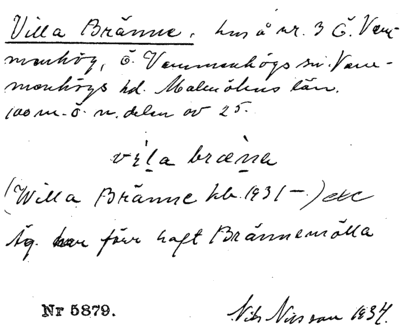 Villa Bränne, hus å nr. 3 Ö. Vem-
menhög, Ö. Vemmenhögs sn. Vem-
menhögs hd. Malmöhus län.
100 m. ö. n. delen av 25.
vi̱la bræṉa
(Willa Bränne kb. 1931–) etc
Äg. har förr haft Brännemölla
Nr 5879.
Nils Nilsson 1934.